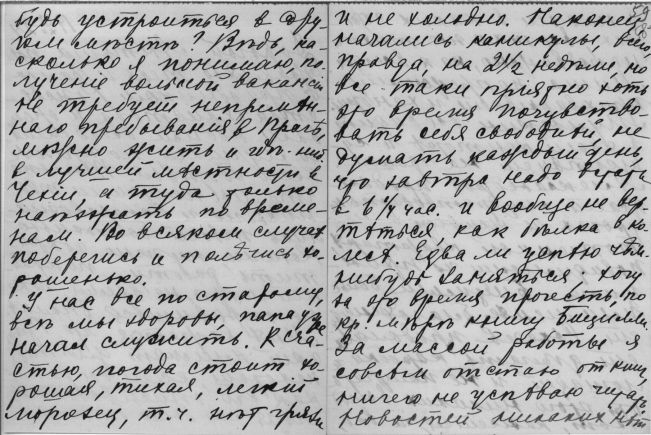 будь устроиться в дру-
гом мѣстѣ? Вѣдь, на-
сколько я понимаю, по-
лученіе вольной вакансіи
не требует непремѣн-
наго пребыванія в Прагѣ,
можно жить и гдѣ-ниб.
в лучшей мѣстности в
Чехіи, а туда только
наѣзжать по време-
нам. Во всяком случаѣ
поберегись и полѣчись хо-
рошенько.
У нас все по старому,
всѣ мы здоровы, папа уже
начал служить. К сча-
стью, погода стоит хо-
рошая, тихая, легкій
морозец, т.ч. нѣт грязи
и не холодно. Наконец
начались каникулы, всего,
правда, на 2 1/2 недѣли, но
все таки пріятно хоть
это время почувство-
вать себя свободной, не
думать каждый день,
что завтра надо встать
в 6 1/4 час. и вообще не вер-
тѣться, как бѣлка в ко-
лесѣ. Едва ли успѣю чѣм-
нибудь заняться; хочу
за это время прочесть, по
кр. мѣрѣ книгу Бицилли.
За массой работы я
совсѣм отстаю от книг,
ничего не успѣваю читать.
Новостей никаких нѣт